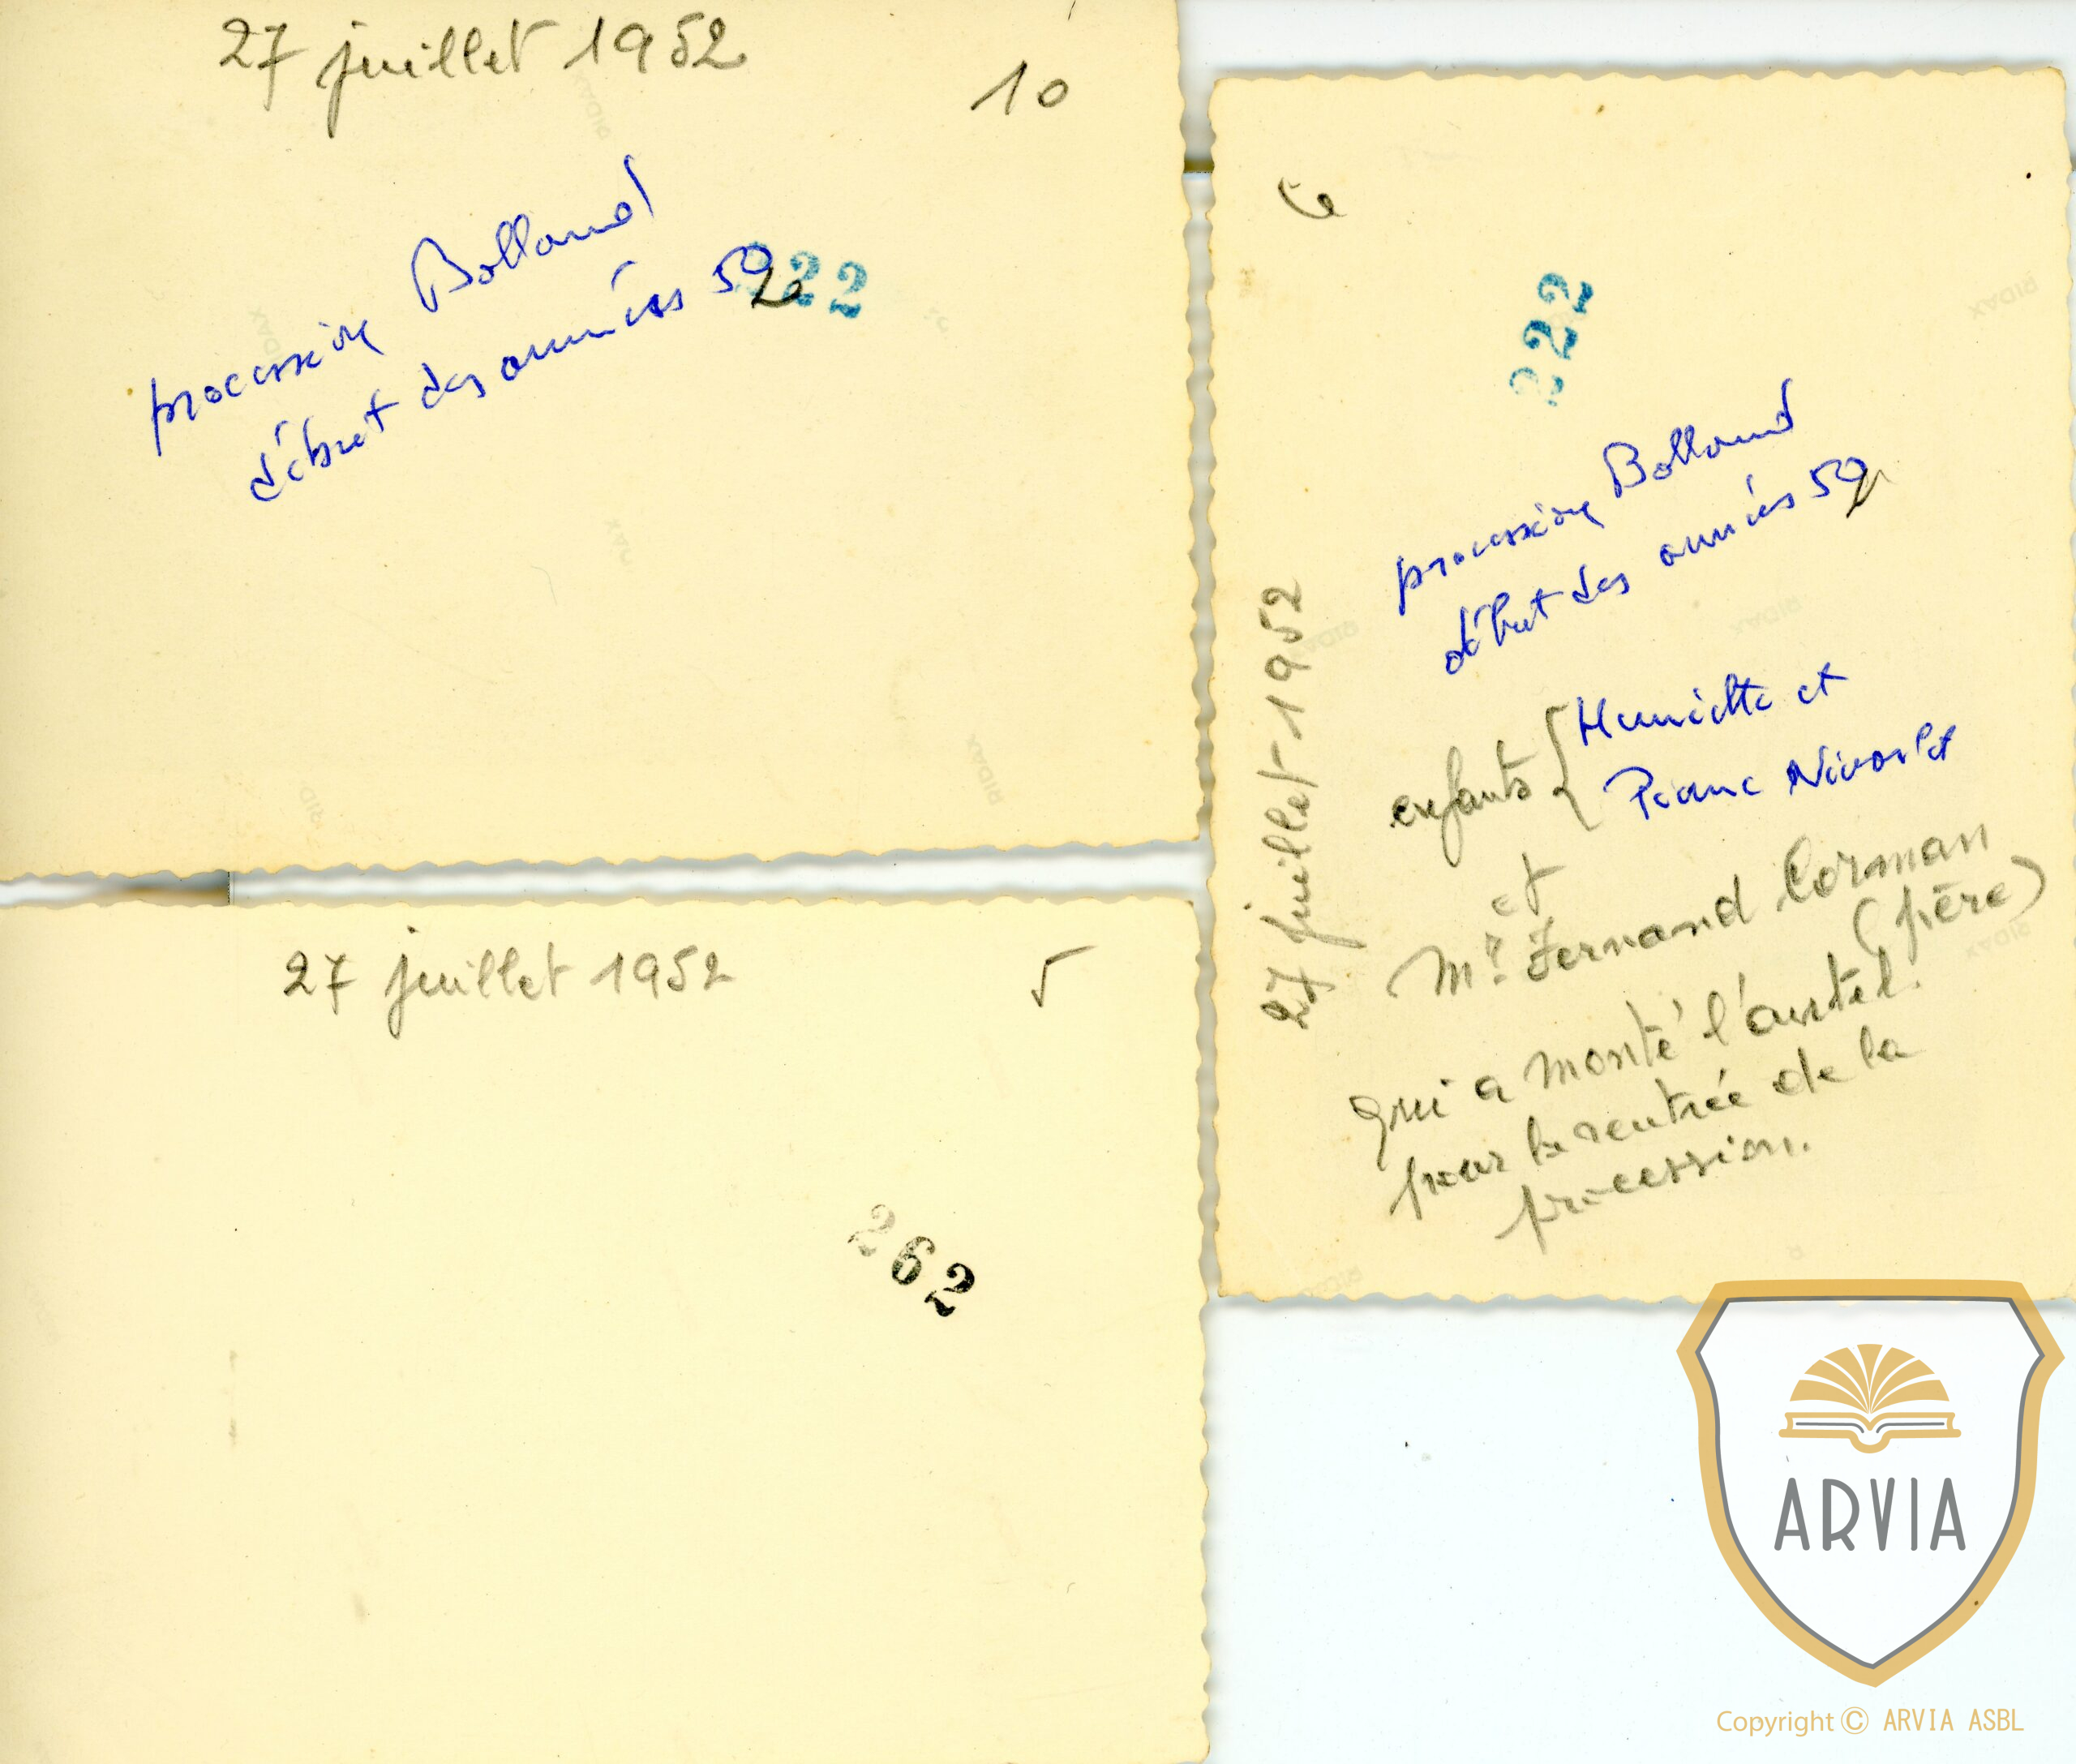 27 juillet 1952
10
procession Bolland
début des années 52
222
27 juillet 1952
5
262
6
222
procession Bolland
début des années 52
27 juillet 1952
enfants { Henriette et
Pierre Nivarlet
et
Mr Fernand Corman
(père)
qui a monté l'autel
pour la rentrée de la
procession.
ARVIA
Copyright © ARVIA ASBL